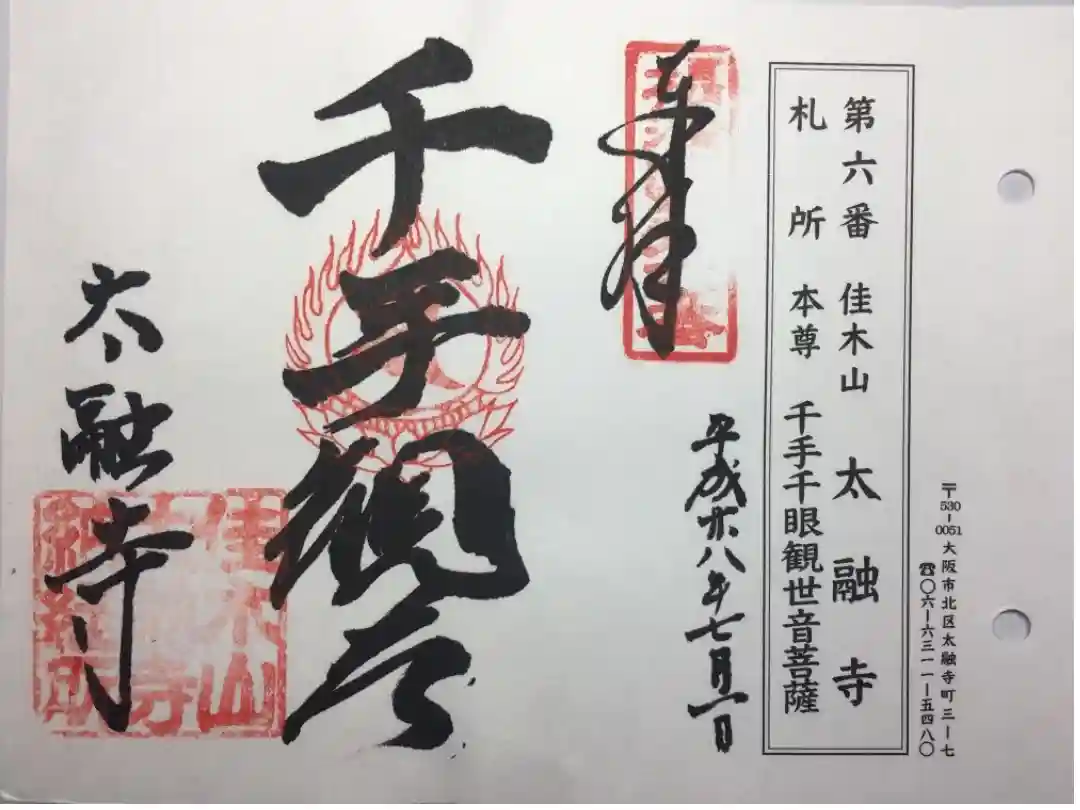 〒530-0051 大阪市北区太融寺町三ー七
☎〇六ー六三一一ー五四八〇
第六番 佳木山 太融寺
札所 本尊 千手千眼観世音菩薩
奉拝
平成廿八年七月一日
千手観音
太融寺
佳木山